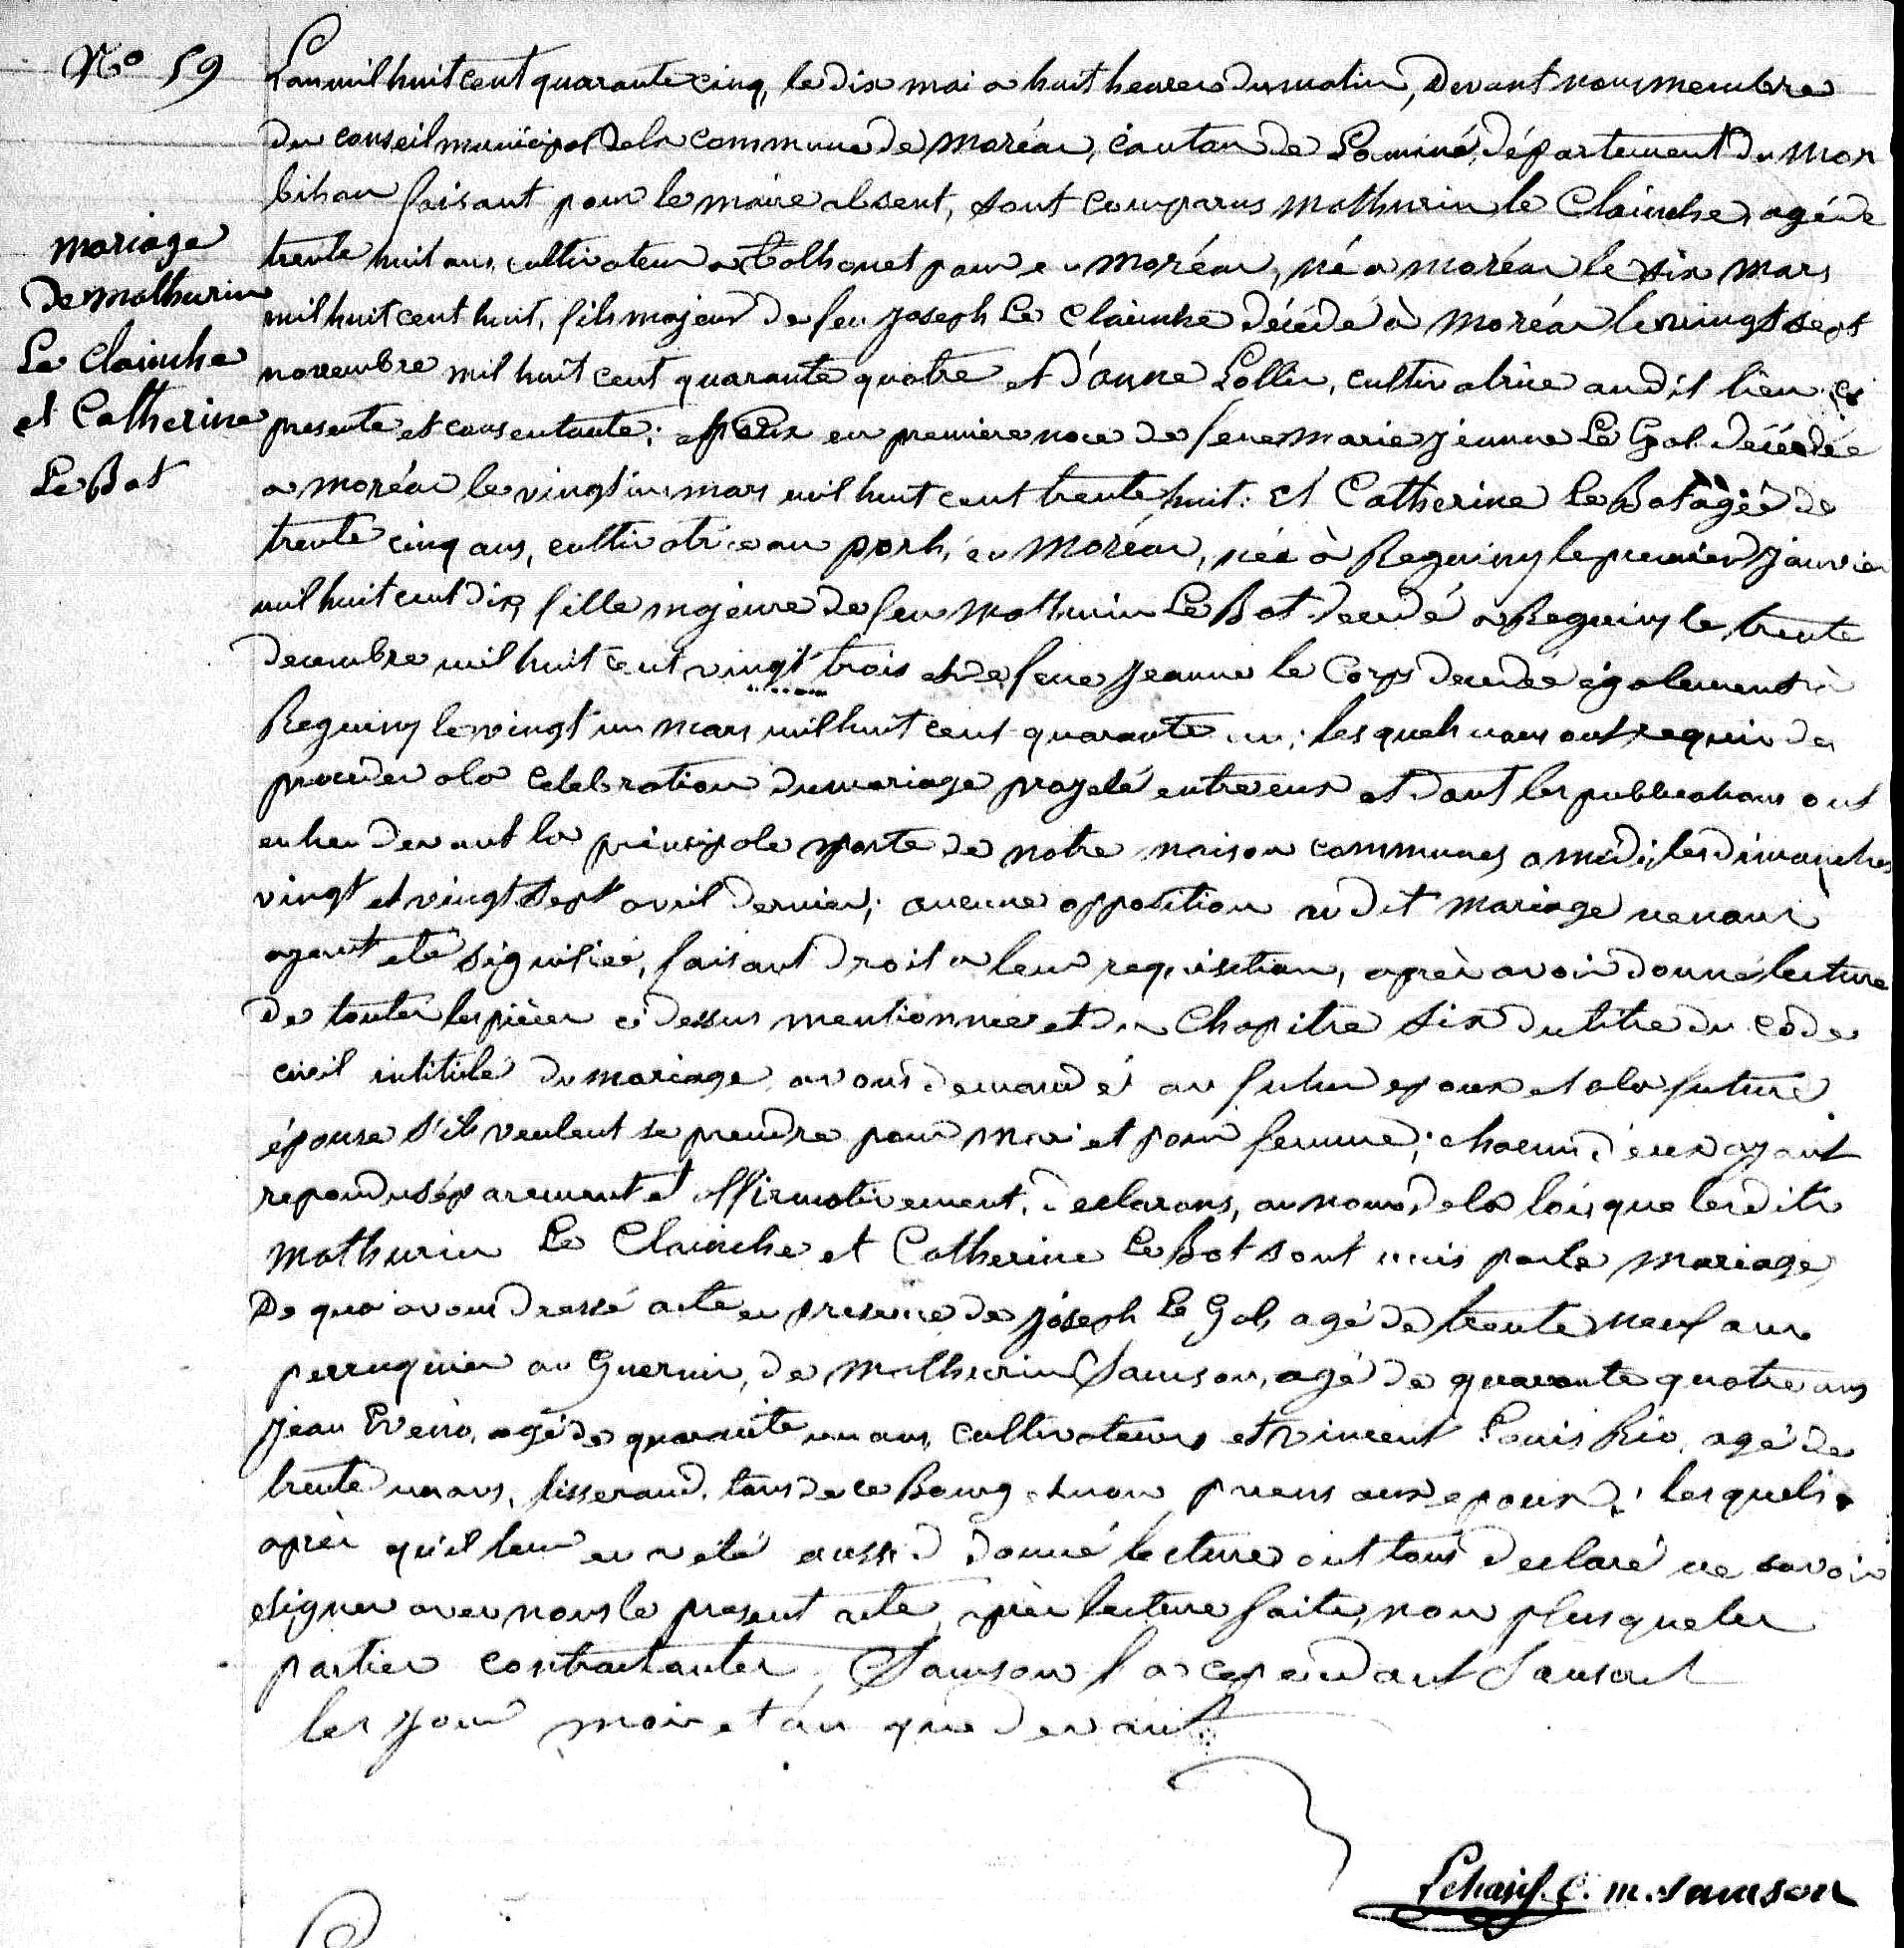 No 59
mariage
de mathurin
Le Clainche
et Catherine
Le Bot
L'an mil huit cent quarante cinq, le dix mai a huit heures du matin, Devant nous membre
du conseil municipal de la commune de moréac, canton de Locminé, département du mor
bihan faisant pour le maire absent, sont comparus mathurin le Clainche, agé de
trente huit ans, cultivateur a en moréac, né a moréac le six mars
mil huit cent huit, fils majeur de feu joseph Le Clainche décédé à moréac le vingt sept
novembre mil huit cent quarante quatre et d'anne Lollier, cultivatrice audit lieu, ci
presente et consentante; en premiere noce de feue marie jeanne Le Gal décédée
a moréac le vingt un mars mil huit cent trente huit: et Catherine Le Bot agée de
trente cinq ans, cultivatrice au porh, en moréac, née à Reguiny le premier janvier
mil huit cent dix, fille majeure de feu mathurin Le Bot decedé a Reguiny le trente
decembre mil huit cent vingt trois et de feue jeanne le Corps decedée également à
Reguiny le vingt un mars mil huit cent quarante un; lesquels nous ont requis de
proceder a la celebration du mariage projeté entre eux et dont les publications ont
eu lieu devant la principale porte de notre maison commune, a midi, les dimanches
vingt et vingt sept avril dernier; aucune opposition au dit mariage ne nous
ayant eté signifiée, faisant droit a leur requisition, après avoir donné lecture
de toutes les pièces ci dessus mentionnée et du Chapitre six du titre du code
civil intitulé du mariage avons demandé au futur epoux et a la future
épouse s'ils veulent se prendre pour mari et pour femme; chacun d'eux ayant
repondu séparement et affirmativement, declarons, au nom de la loi, que lesdits
mathurin Le Clainche et Catherine Le Bot sont unis par le mariage,
De quoi avons dressé acte en presence de joseph Le Gal, agé de trente neuf ans
perruquier au Guernic, de mathurin Samson, agé de quarante quatre ans
jean Eveno, agé de quarante un ans, cultivateurs et vincent Louis Rio, agé de
trente un ans, tisserand, tous de ce Bourg et non parens aux epoux; lesquels
après qu'il leur en a eté aussi donné lecture ont tous declaré ne savoir
signer avec nous le present acte, après lecture faite, non plus que les
parties contractantes, Samson l'a cependant
les jour mois et an que devant
m. Samson